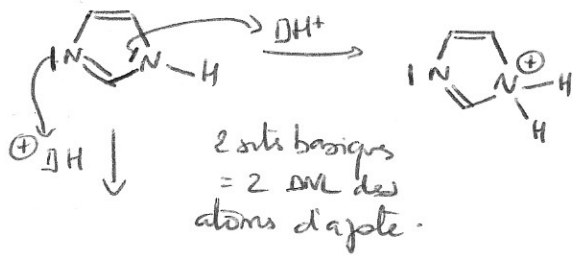 DH⁺
N
N
H
N
N
⊕
H
H
⊕
DH
2 sites basiques
= 2 DNL des
atoms d'azote.